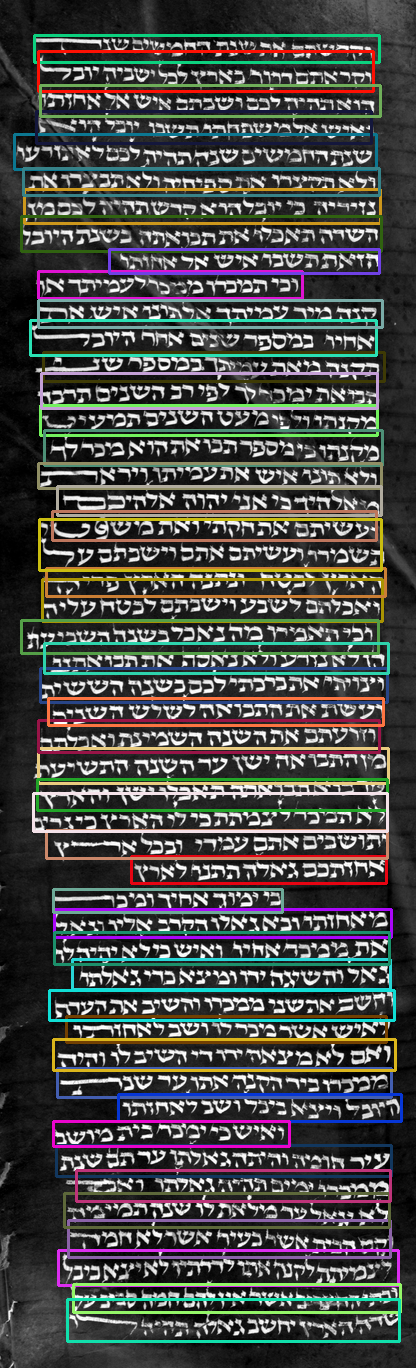 וקדשתם את שנת החמשים שנה
וקראתם דרור בארץ לכל ישביה יובל
הוא תהיה לכם ושבתם איש אל אחזתו
ואיש אל משפחתו תשבו יובל הוא
שנת החמשים שנה תהיה לכם לא תזרעו
ולא תקצרו את ספיחיה ולא תבצרו את
נזריה כי יובל הוא קדש תהיה לכם מן
השדה תאכלו את תבואתה בשנת היובל
הזאת תשבו איש אל אחזתו
וכי תמכרו ממכר לעמיתך או
קנה מיד עמיתך אל תונו איש את
אחיו במספר שנים אחר היובל
תקנה מאת עמיתך במספר שני
תבואת ימכר לך לפי רב השנים תרבה
מקנתו ולפי מעט השנים תמעיט
מקנתו כי מספר תבואת הוא מכר לך
ולא תונו איש את עמיתו ויראת
מאלהיך כי אני יהוה אלהיכם
ועשיתם את חקתי ואת משפטי
תשמרו ועשיתם אתם וישבתם על
הארץ לבטח ונתנה הארץ פריה
ואכלתם לשבע וישבתם לבטח עליה
וכי תאמרו מה נאכל בשנה השביעת
הן לא נזרע ולא נאסף את תבואתנו
וצויתי את ברכתי לכם בשנה הששית
ועשת את התבואה לשלש השנים
וזרעתם את השנה השמינת ואכלתם
מן התבואה ישן עד השנה התשיעת
עד בוא תבואתה תאכלו ישן והארץ
לא תמכר לצמתת כי לי הארץ כי גרים
ותושבים אתם עמדי ובכל ארץ
אחזתכם גאלה תתנו לארץ
כי ימוך אחיך ומכר
מאחזתו ובא גאלו הקרב אליו וגאל
את ממכר אחיו ואיש כי לא יהיה לו
גאל והשיגה ידו ומצא כדי גאלתו
וחשב את שני ממכרו והשיב את העדף
לאיש אשר מכר לו ושב לאחזתו
ואם לא מצאה ידו די השיב לו והיה
ממכרו ביד הקנה אתו עד שנת
היובל ויצא ביבל ושב לאחזתו
ואיש כי ימכר בית מושב
עיר חומה והיתה גאלתו עד תם שנת
ממכרו ימים תהיה גאלתו ואם
לא יגאל עד מלאת לו שנה תמימה
וקם הבית אשר בעיר אשר לא חמה
לצמיתת לקנה אתו לדרתיו לא יצא ביבל
ובתי החצרים אשר אין להם חמה סביב על
שדה הארץ יחשב גאלה תהיה לו